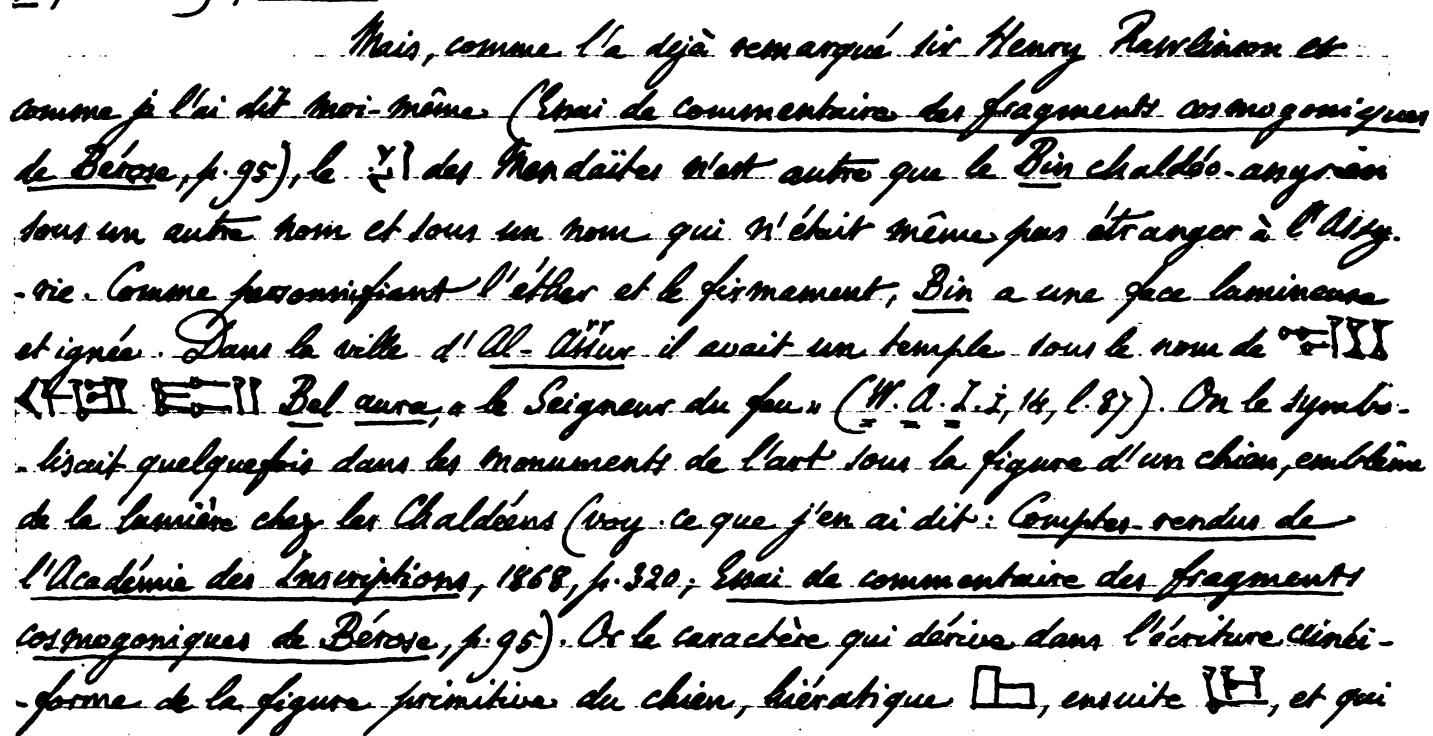 Mais, comme l'a déjà remarqué sir Henry Rawlinson et
comme je l'ai dit moi-même (Essai de commentaire des fragments cosmogoniques
de Bérose, p. 95), le des Mendaïtes n'est autre que le Bin chaldéo-assyrien
sous un autre nom et sous un nom qui n'était même pas étranger à l'Assy-
-rie. Comme personnifiant l'éther et le firmament, Bin a une face lumineuse
et ignée. Dans la ville d'Al-Assur il avait un temple sous le nom de
Bel aura, « le Seigneur du feu » (W. A. I. I, 14, l. 87). On le symbo-
-lisait quelquefois dans les monuments de l'art sous la figure d'un chien, emblême
de la lumière chez les Chaldéens (voy. ce que j'en ai dit : Comptes-rendus de
l'Académie des Inscriptions, 1868, p. 320 ; Essai de commentaire des fragments
cosmogoniques de Bérose, p. 95). Or le caractère qui dérive dans l'écriture cunéi-
-forme de la figure primitive du chien, hiératique , ensuite , et qui